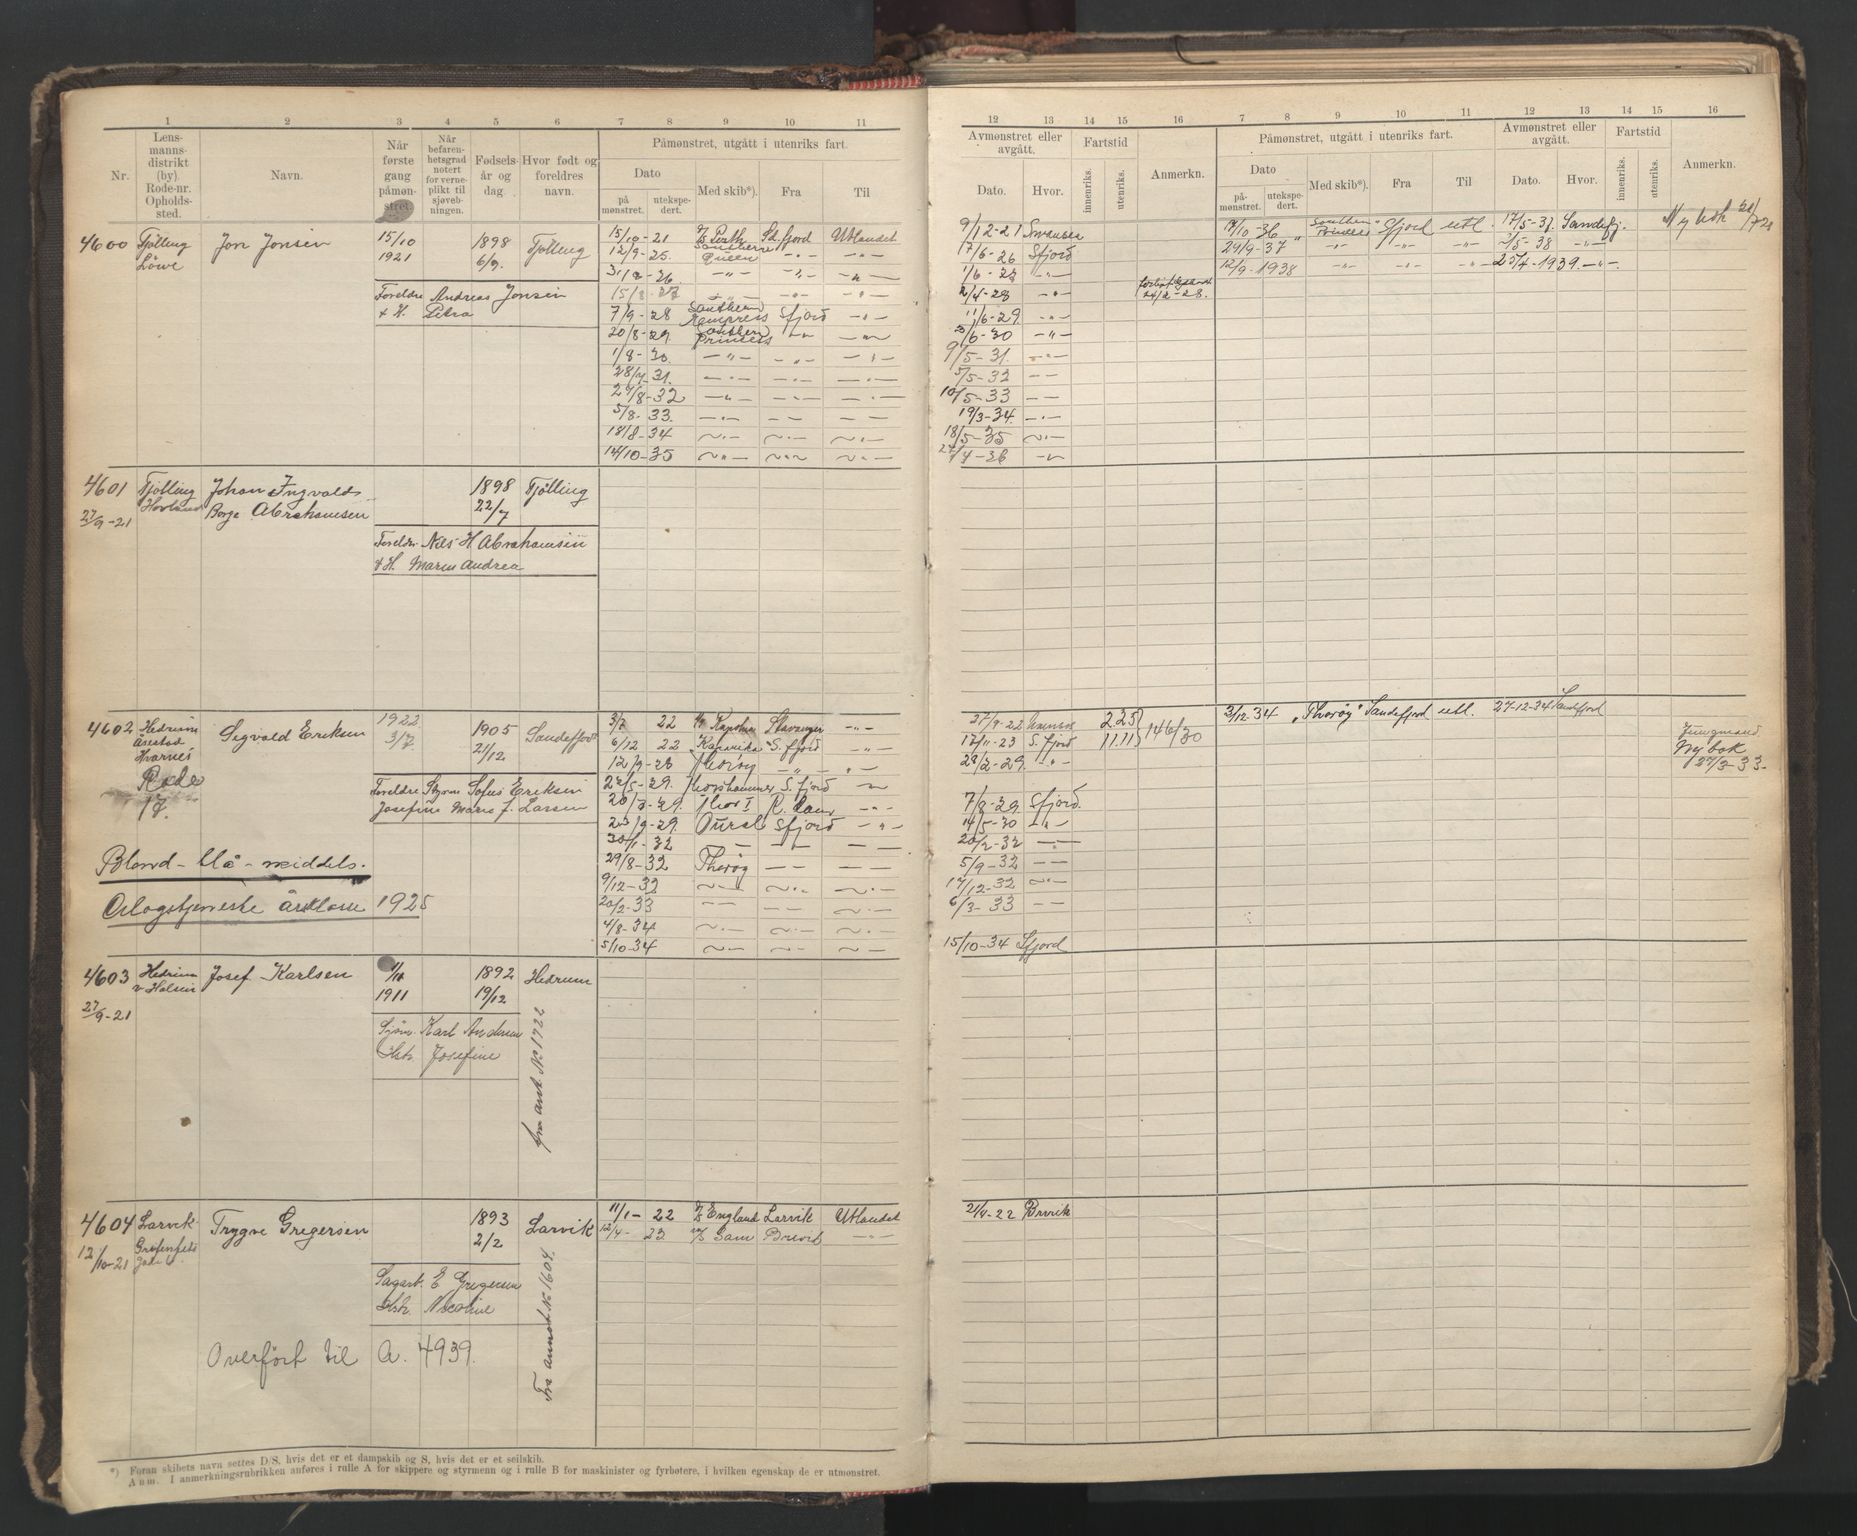 1 2 3 4 5 6 7 8 9 10 11
Nr.
Lens-
manns-
distrikt
(by).
Rode-nr.
Opholds-
sted.
Navn.
Når
første
gang
påmøn-
stret.
Når
befaren-
hetsgrad
notert
for verne-
plikt til
sjøveb-
ningen.
Fødsels-
år og
dag.
Hvor født og
foreldres
navn.
Påmønstret, utgått i utenriks fart.
Dato
på
mønstret.
utekspe-
dert.
Med skib*).
Fra
Til
4600 Tjølling Jon Jonsen 15/10 1898 Tjølling 15/10-21 D/S Perth Sd.fjord Utlandet
Löwe 1921 6/9. 12/9-25. Southern Queen -"- -"-
31/2-26 -"- -"- -"-
Foreldre Andreas Jonsen 15/8-27 -"- -"- -"-
& H. Petra 7/9-28 Southern Empress Sfjord -"-
20/8-29. Southern Princess -"- -"-
1/8-30. -"- -"- -"-
28/7-31. -"- -"- -"-
27/8-32 -"- -"- -"-
5/8-33. -"- -"- -"-
18/8-34 -"- -"- -"-
14/10-35 -"- -"- -"-
4601 Tjølling Johan Ingvalds 1898 Tjølling
27/9-21 Hovland Borge Abrahamsen 22/7
Foreldre Nils H Abrahamsen
& H. Maren Andrea
4602 Hedrum Sigvald Eriksen 1922 1905 Sandefjord 3/7 22 Stavanger -"-
Hvarnes 3/7. 21/12 6/12 22 S.fjord -"-
Rode 12/9-23 Thorøy -"- -"-
17. Foreldre Styrm Sofus Eriksen 22/5-29. Thorshammer S.fjord -"-
Josefine Marie f. Larsen 20/7-29. Thor I -"-
23/9-29. Oural Sfjord -"-
30/1-32 - - -
Blond - blå - middels. 29/8-32 Thorøy - -
9/12-32 -"- -"- -"-
Orlogstjeneste årsklasse 1925 20/2-33 -"- -"-
4/8-34 -"- -"- -"-
5/10-34 -"- -"- -"-
4603 Hedrum Josef Karlsen 1/11 1892 Hedrum
27/9-21 1911 19/12
Karl Andersen
Hstr. Josefine
fra anst No 1722
4604 Larvik Trygve Gregersen 1893 Larvik 11/1-22 D/S England Larvik Utlandet
12/10-21 2/2 12/4-23. Brevik -"-
Sagarb. E Gregersen
Hstr. Nicoline
Fra annot № 1604.
Overført til A. 4939.
*) Foran skibets navn settes D/S, hvis det er et dampskib og S, hvis det er et seilskib.
Anm. I anmerkningsrubrikken anføres i rulle A for skippere og styrmenn og i rulle B for maskinister og fyrbøtere, i hvilken egenskap de er utmønstret.
12 13 14 15 16 7 8 9 10 11 12 13 14 15 16
Avmønstret eller
avgått.
Dato.
Hvor.
Fartstid
innenriks.
utenriks.
Anmerkn.
Påmønstret, utgått i utenriks fart.
Dato
på-
mønstret.
utekspe-
dert.
Med skib*).
Fra
Til
Avmønstret eller
avgått.
Dato.
Hvor.
Fartstid
innenriks.
utenriks.
Anmerkn.
9/12-21 Swansea 9/10-36 "Southern Princess" Sfjord utl. 17/5-37. Sandefj. Ny bok
17/6-26 Sfjord 29/9-37 -"- -"- -"- 2/5-38 -"-
1/6-27 -"- 12/9-1938 -"- -"- -"- 25/4-1939. -"-
2/4-28 -"- 24/2-28.
11/6-29. -"-
30/6-30 -"-
9/5-31. -"-
5/5-32 - -
10/5-33 - -
19/3-34. -"-
18/5-35 -"-
27/4-36 -"-
27/9-22 2.25 146/30 3/12-34 „Thorøy" Sandefjord utl. 27-12-34 Sandefjord
17/11-23 S.fjord 11.11 Jungmand.
28/2-29. -"- Ny bok
27/3-33-
7/8-29. Sfjord.
14/5-30 -"-
20/2-32 -"-
5/9-32 - -
17/12-32 -"-
6/3-33 - -
15/10-34 Sfjord
21/4-22 Brevik